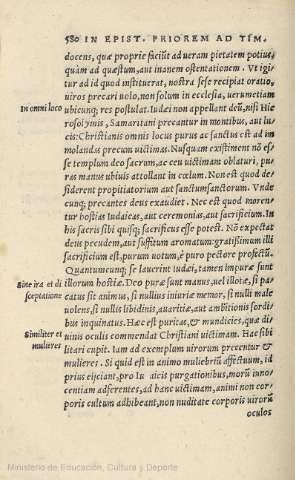 580 IN EPIST. PRIOREM AD TIM.
docens, quæ proprie faciũt ad ueram pietatem potius,
quàm ad quæstum, aut inanem ostentationem. Vt igi-
tur ad id quod instituerat, nostra sese recipiat oratio,
uiros precari uolo, non solum in ecclesia, uerumetiam
In omni loco
ubicunq; res postulat. Iudæi non appellant deũ, nisi Hie
rosolymis, Samaritani precantur in montibus, aut lu-
cis: Christianis omnis locus purus ac sanctus est ad im
molandas precum uictimas. Nusquam existiment nõ es-
se templum deo sacrum, ac ceu uictimam oblaturi, pu-
ras manus ubiuis attollant in cœlum. Non est quod de-
siderent propitiatorium aut sanctumsanctorum. Vnde
cunq; precantes deus exaudiet. Nec est quod moren-
tur hostias Iudaicas, aut ceremonias, aut sacrificium. In
his sacris sibi quisq; sacrificus esse potest. Nõ expectat
deus pecudem, aut suffitum aromatum: gratissimum illi
sacrificium est, purum uotum, è puro pectore profectũ.
Quantumcunq; se lauerint Iudæi, tamen impuræ sunt
Sine ira et di
sceptatione
illorum hostiæ. Deo puræ sunt manus, uel illotæ, si pa-
catus sit animus, si nullius iniuriæ memor, si nulli male
uolens, si nullis libidinis, auaritiæ, aut ambitionis sordi-
bus inquinatus. Hæc est puritas, & mundicies, quæ di-
Similiter et
mulieres
uinis oculis commendat Christiani uictimam. Hæc sibi
litari cupit. Iam ad exemplum uirorum precentur &
mulieres. Si quid est in animo muliebriũ affectuum, id
prius eijciant, pro Iudaicis purgationibus, morũ inno-
centiam adferentes, ad hanc uictimam, animi non cor-
poris cultum adhibeant, non nuditate corporis uirorũ
oculos
Ministerio de Educación, Cultura y Deporte